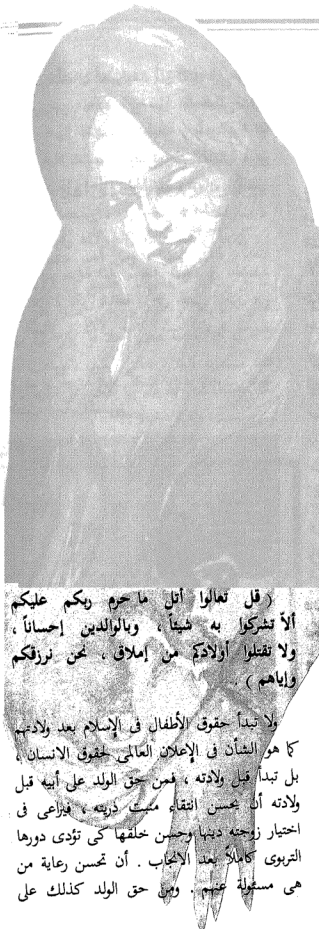 ( قل تعالوا أتل ما حرم ربكم عليكم
ألاّ تشركوا به شيئاً ، وبالوالدين إحساناً ،
ولا تقتلوا أولادكم من إملاق ، نحن نرزقكم
وإياهم ) .
ولا تبدأ حقوق الأطفال فى الإسلام بعد ولادتهم
كما هو الشأن فى الإعلان العالمى لحقوق الانسان ،
بل تبدأ قبل ولادته ، فمن حق الولد على أبيه قبل
ولادته أن يحسن انتقاء منبت ذريته ، فيراعى فى
اختيار زوجته دينها وحسن خلقها كى تؤدى دورها
التربوى كاملاً بعد الانجاب . أن تحسن رعاية من
هى مسئولة عنهم . ومن حق الولد كذلك على